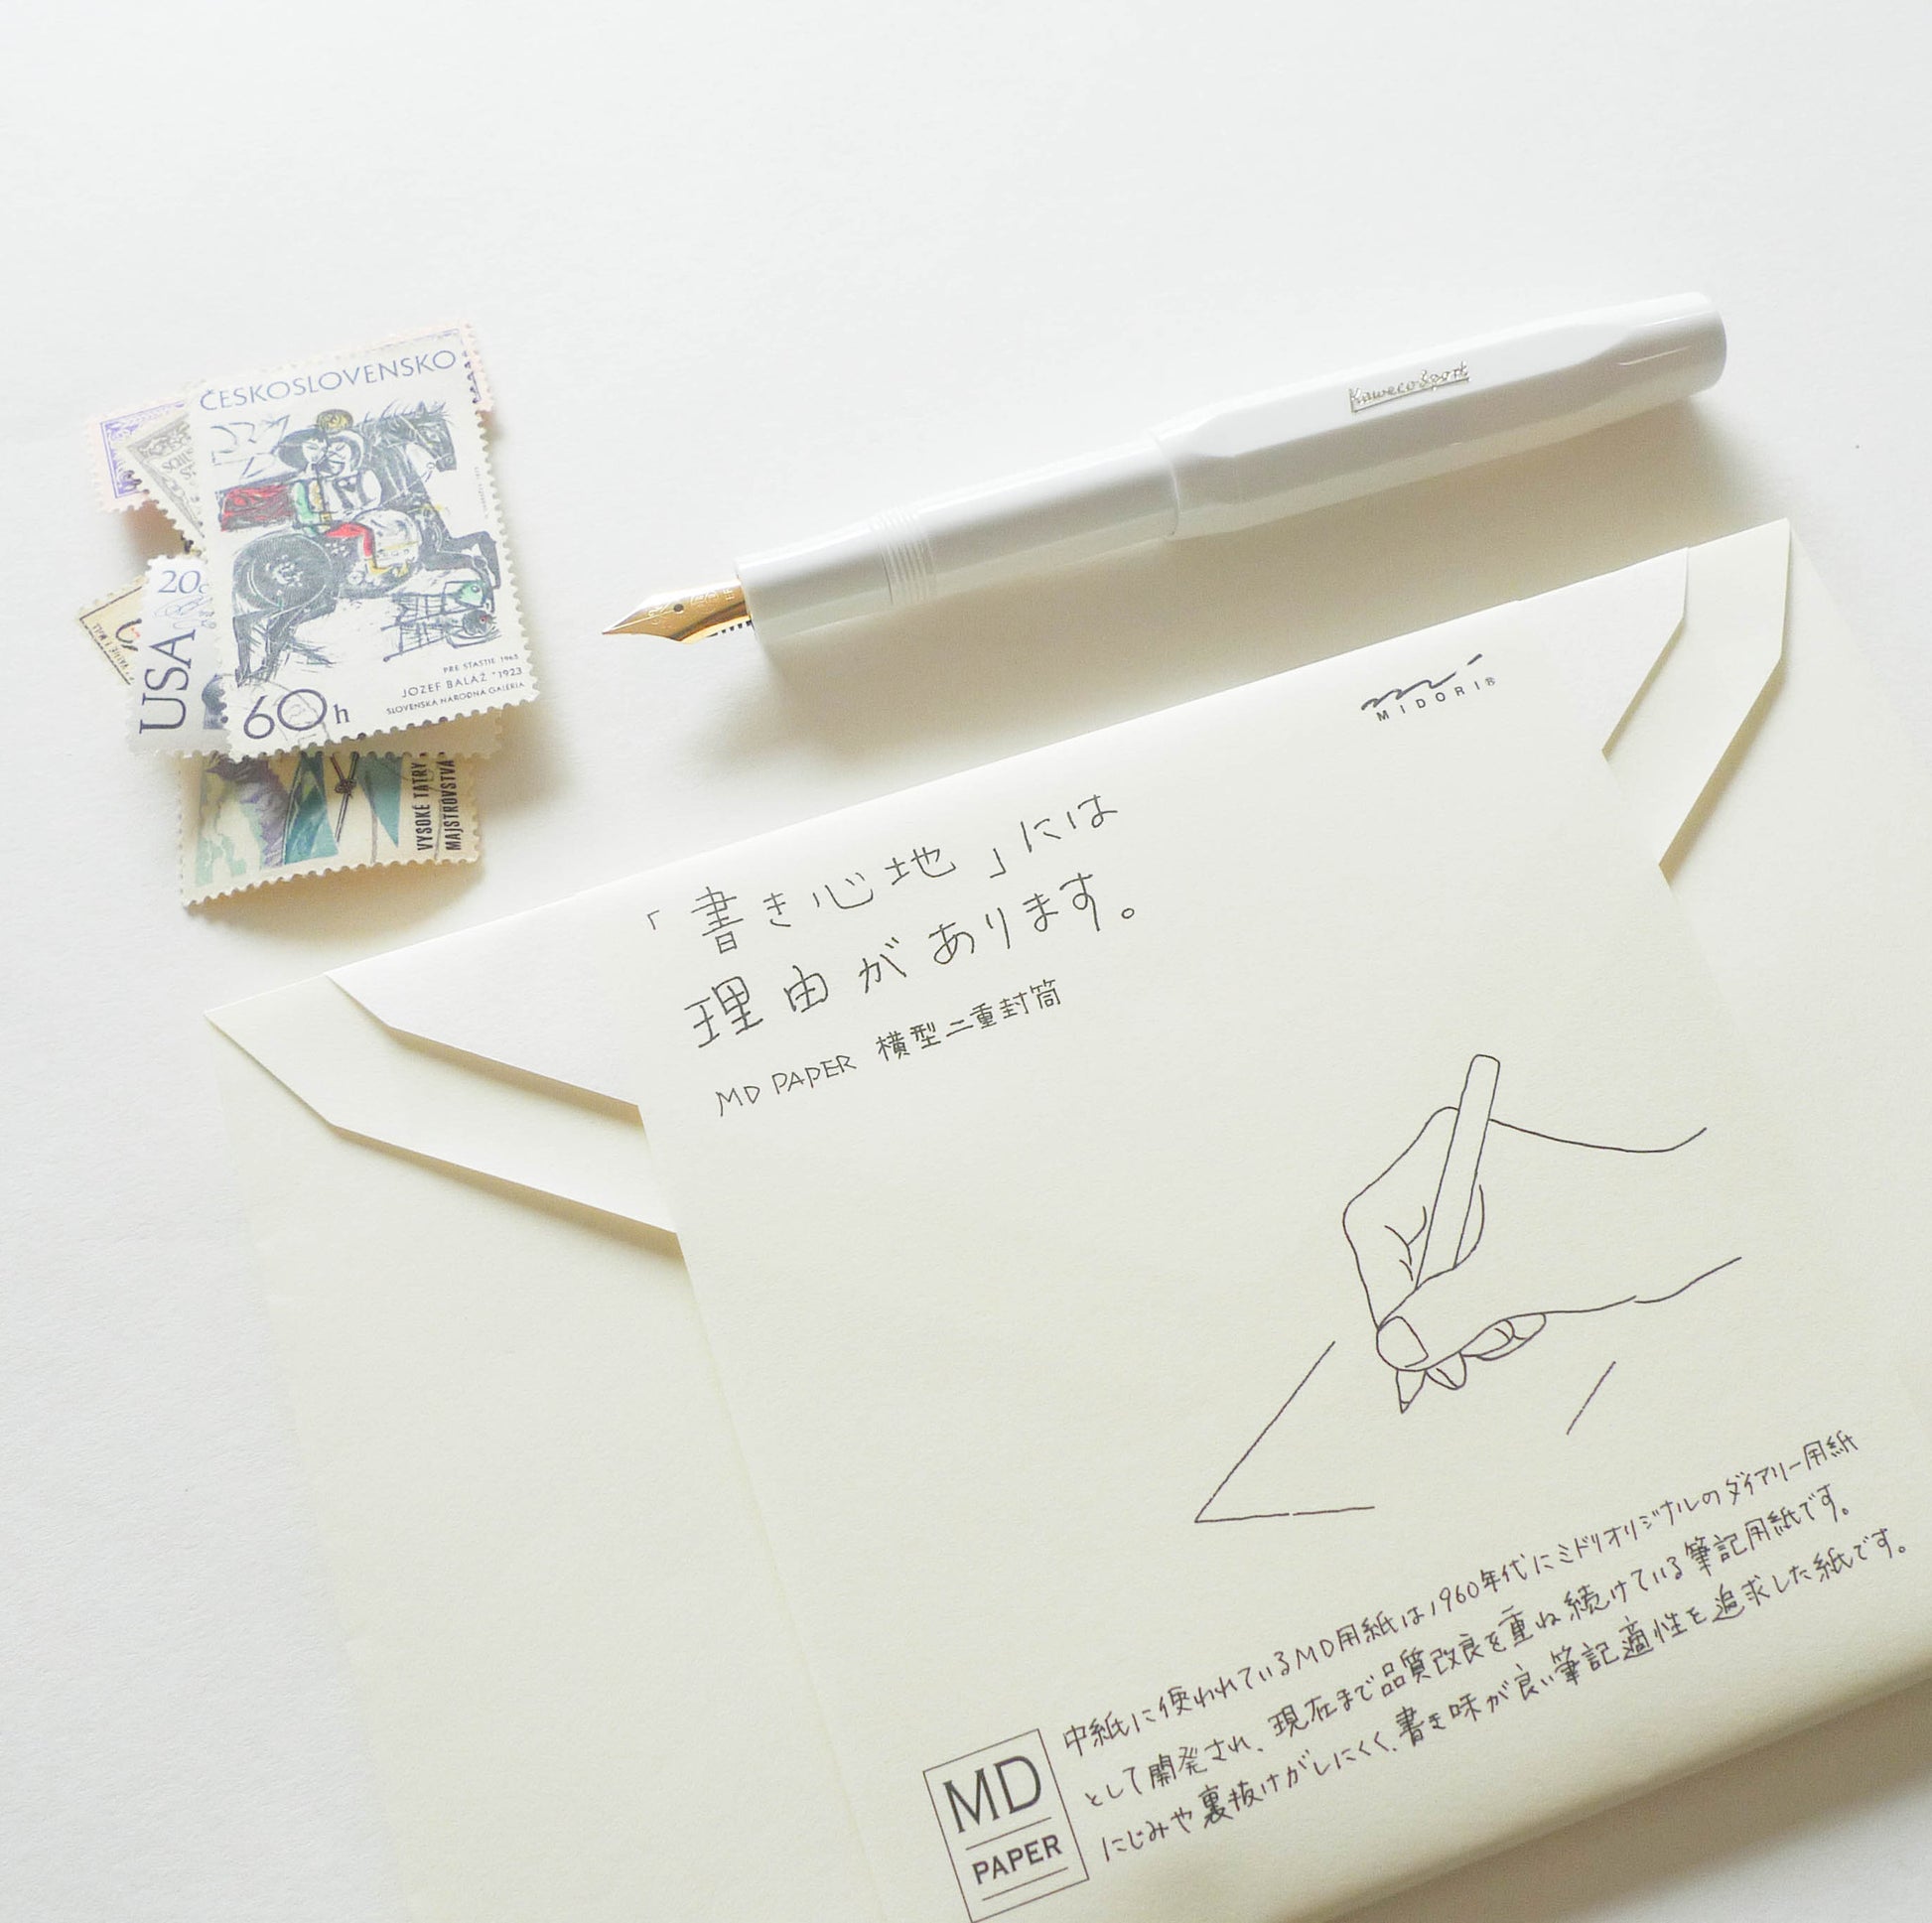 ČESKOSLOVENSKO
PRE ŠTASTIE 1965
JOZEF BALÁŽ *1923
SLOVENSKÁ NÁRODNÁ GALÉRIA
60h
20c
USA
VYSOKÉ TATRY
MAJSTROVSTVÁ
Kaweco Sport
MIDORI®
「書き心地」には
理由があります。
MD PAPER 横型二重封筒
中紙に使われているMD用紙は1960年代にミドリオリジナルのダイアリー用紙
として開発され、現在まで品質改良を重ね続けている筆記用紙です。
にじみや裏抜けがしにくく、書き味が良い筆記適性を追求した紙です。
MD
PAPER